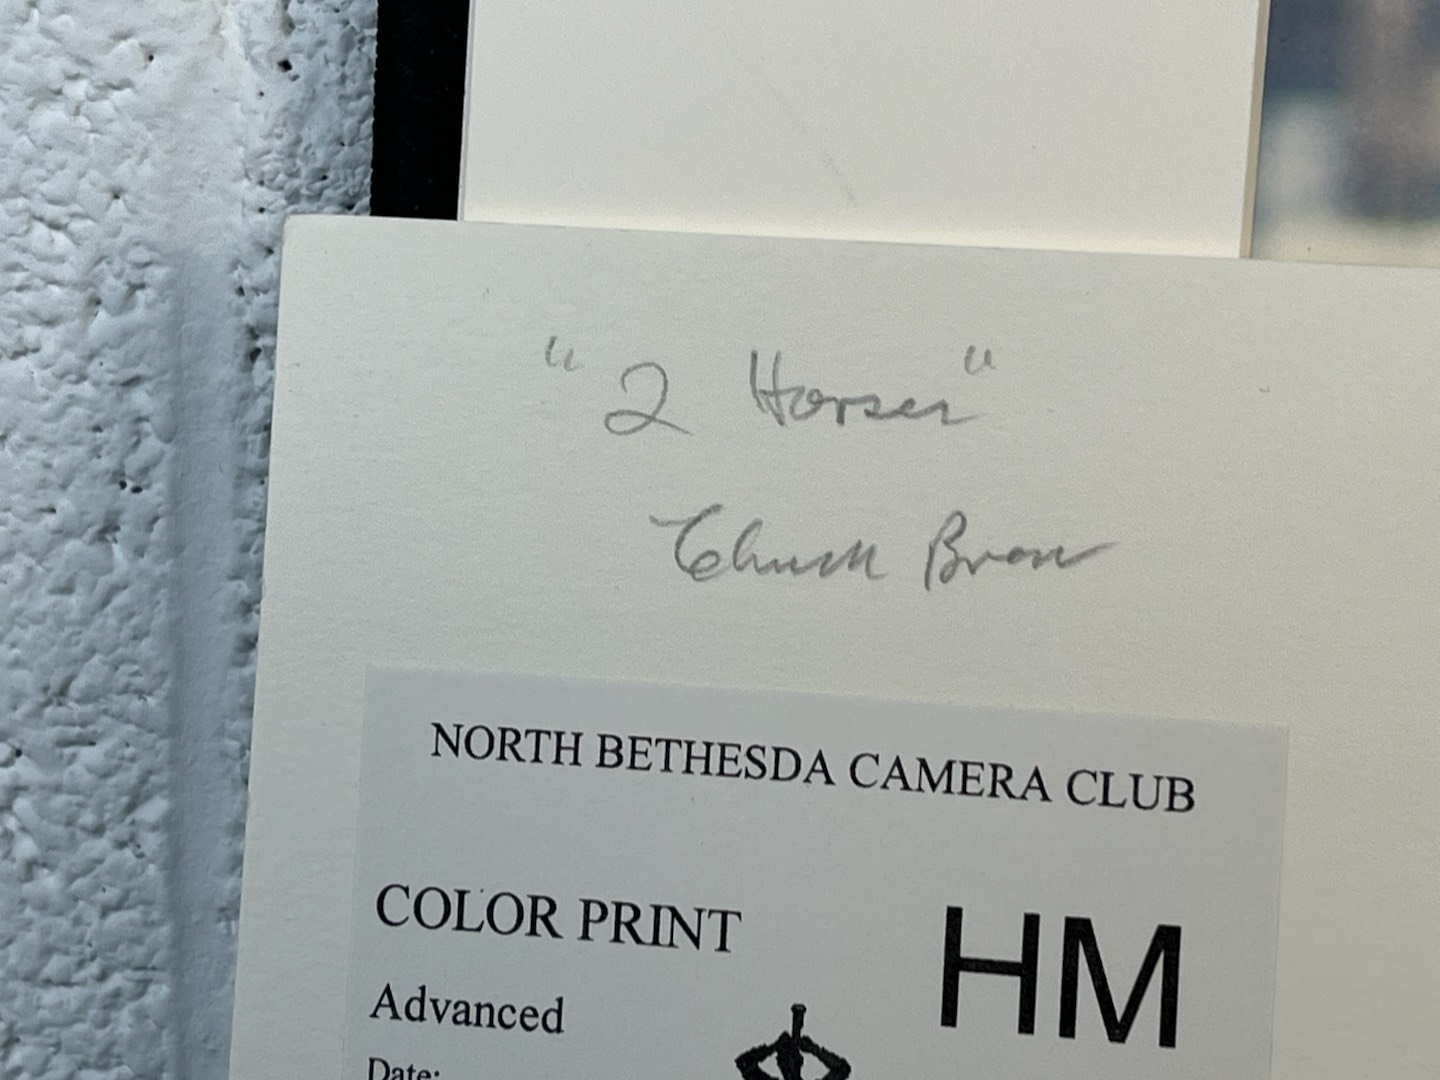 "2 Horses"
Chuck Brow
NORTH BETHESDA CAMERA CLUB
COLOR PRINT
HM
Advanced
Date: